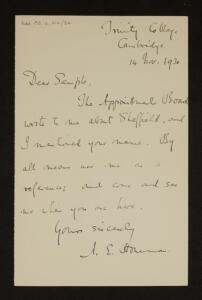 Trinity College,
Cambridge.
14 Nov. 1930
Dear Semple,
The Appointments Board
wrote to me about Sheffield, and
I mentioned your name. By
all means use me as a
reference; and come and see
me when you are here.
Yours sincerely
A. E. Housman.